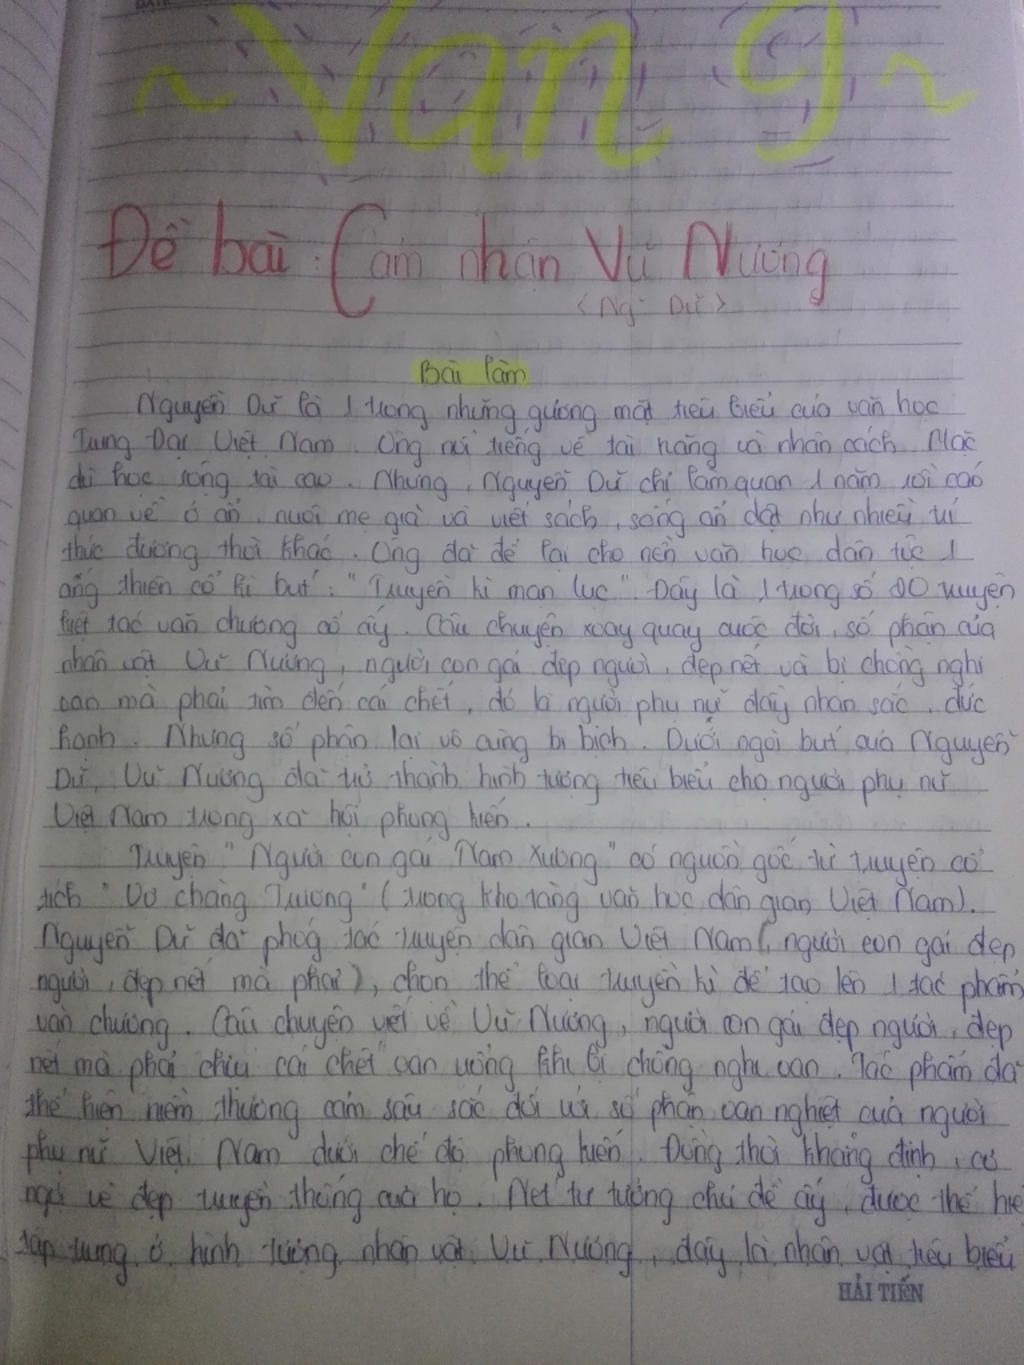 ~ Văn 9 ~
Đề bài: Cảm nhận Vũ Nương
<Ng~ Dữ>
Bài làm
Nguyễn Dữ là 1 trong những gương mặt tiêu biểu của văn học
Trung Đại Việt Nam. Ông nổi tiếng về tài năng và nhân cách. Mặc
dù học rộng tài cao. Nhưng, Nguyễn Dữ chỉ làm quan 1 năm rồi cáo
quan về ở ẩn, nuôi mẹ già và viết sách, sống ẩn dật như nhiều trí
thức đương thời khác. Ông đã để lại cho nền văn học dân tộc 1
áng thiên cổ kì bút: "Truyền kì mạn lục". Đây là 1 trong số 20 truyện
kiệt tác văn chương cổ ấy. Câu chuyện xoay quay cuộc đời, số phận của
nhân vật Vũ Nương, người con gái đẹp người, đẹp nết và bị chồng nghi
oan mà phải tìm đến cái chết, đó là người phụ nữ đầy nhan sắc, đức
hạnh. Nhưng số phận lại vô cùng bi bịch. Dưới ngòi bút của Nguyễn
Dữ, Vũ Nương đã trở thành hình tượng tiêu biểu cho người phụ nữ
Việt Nam trong xã hội phong kiến.
Truyện "Người con gái Nam Xương" có nguồn gốc từ truyện cổ
tích "Vợ chàng Trương" (trong kho tàng văn học dân gian Việt Nam).
Nguyễn Dữ đã phóg tác truyện dân gian Việt Nam (người con gái đẹp
người, đẹp nết mà phải), chọn thể loại truyền kì để tạo lên 1 tác phẩm
văn chương. Câu chuyện viết về Vũ Nương, người con gái đẹp người, đẹp
nết mà phải chịu cái chết oan uổng khi bị chồng nghi oan. Tác phẩm đã
thể hiện niềm thương cảm sâu sắc đối với số phận oan nghiệt của người
phụ nữ Việt Nam dưới chế độ phong kiến. Đồng thời khẳng định, ca
ngợi vẻ đẹp truyền thống của họ. Nét tư tưởng chủ đề ấy, được thể hiệ
tập trung ở hình tượng nhân vật Vũ Nương, đây là nhân vật tiêu biểu
HẢI TIẾN